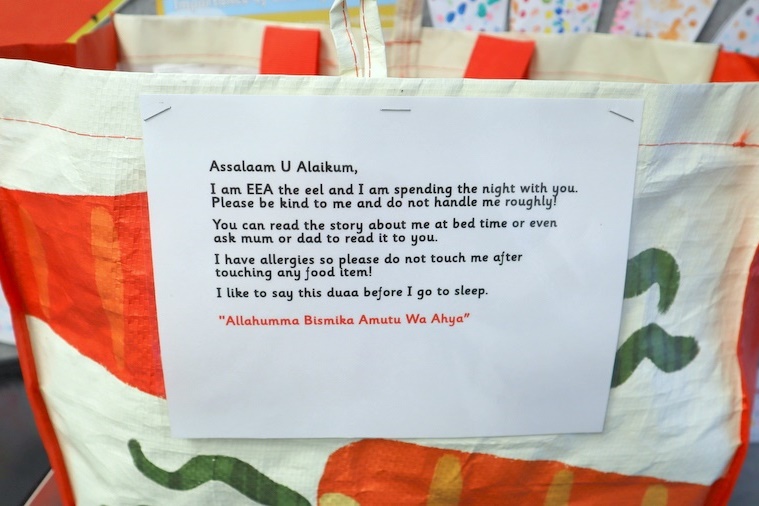 Assalaam U Alaikum,
I am EEA the eel and I am spending the night with you.
Please be kind to me and do not handle me roughly!
You can read the story about me at bed time or even
ask mum or dad to read it to you.
I have allergies so please do not touch me after
touching any food item!
I like to say this duaa before I go to sleep.
"Allahumma Bismika Amutu Wa Ahya"